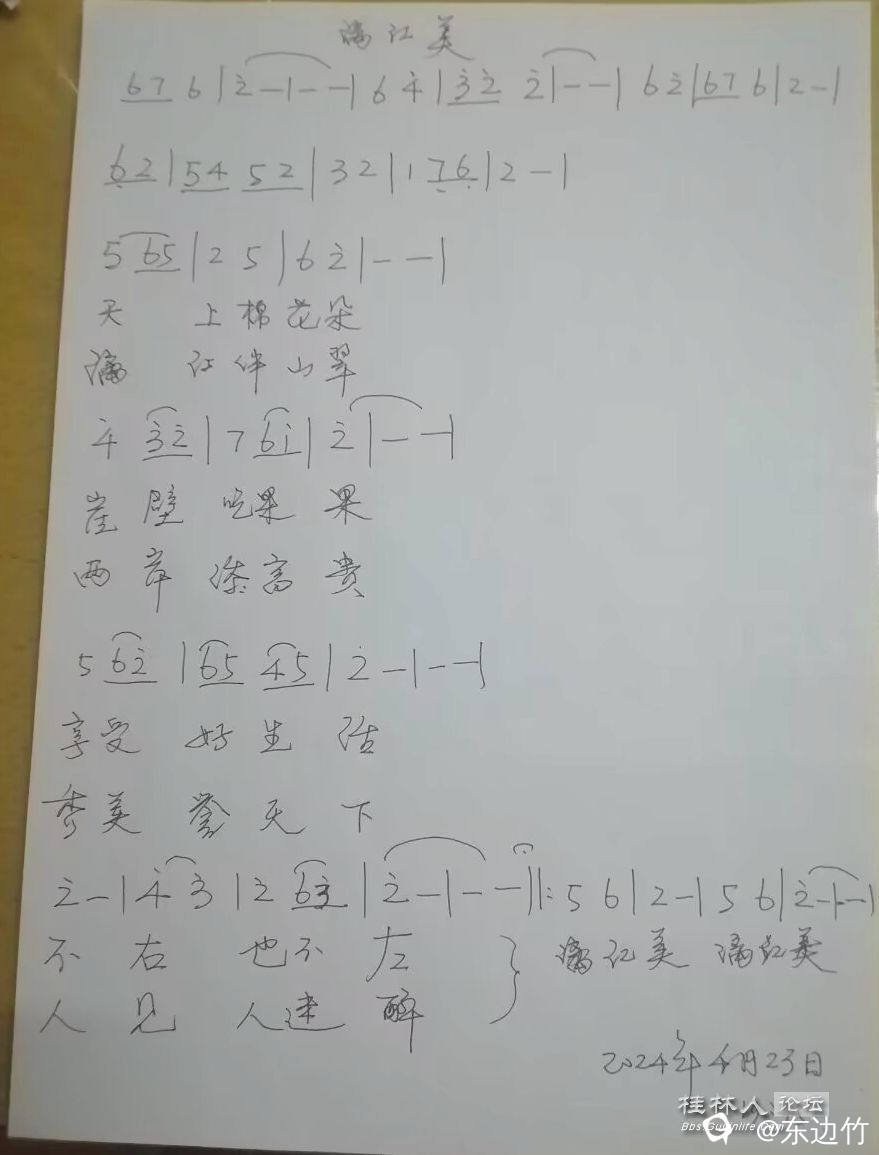 漓江美
67 6 | 2̇ — | — — | 6 4̇ | 3̇2̇ 2̇ | — — | 6 2̇ | 67 6 | 2 — |
6̣2 | 54 52 | 32 | 1 7̣6̣ | 2 — |
5 65 | 2 5 | 6 2̇ | — — |
天 上棉花朵
漓 江伴山翠
4̇ 3̇2̇ | 7 61̇ | 2̇ | — — |
崖壁 吃果 果
两岸 添富 贵
5 62̇ | 65 45 | 2̇ — | — — |
享受 好生 活
秀美 誉天 下
2̇ — | 4̇ 3̇ | 2 63̇ | 2̇ — | — — ‖: 5 6 | 2 — | 5 6 | 2̇ — | — |
不 右 也不 左 } 漓江美 漓江美
人 见 人迷 醉
2024年4月23日
桂林人论坛
Bbs.Guilinlife.Com
@东边竹